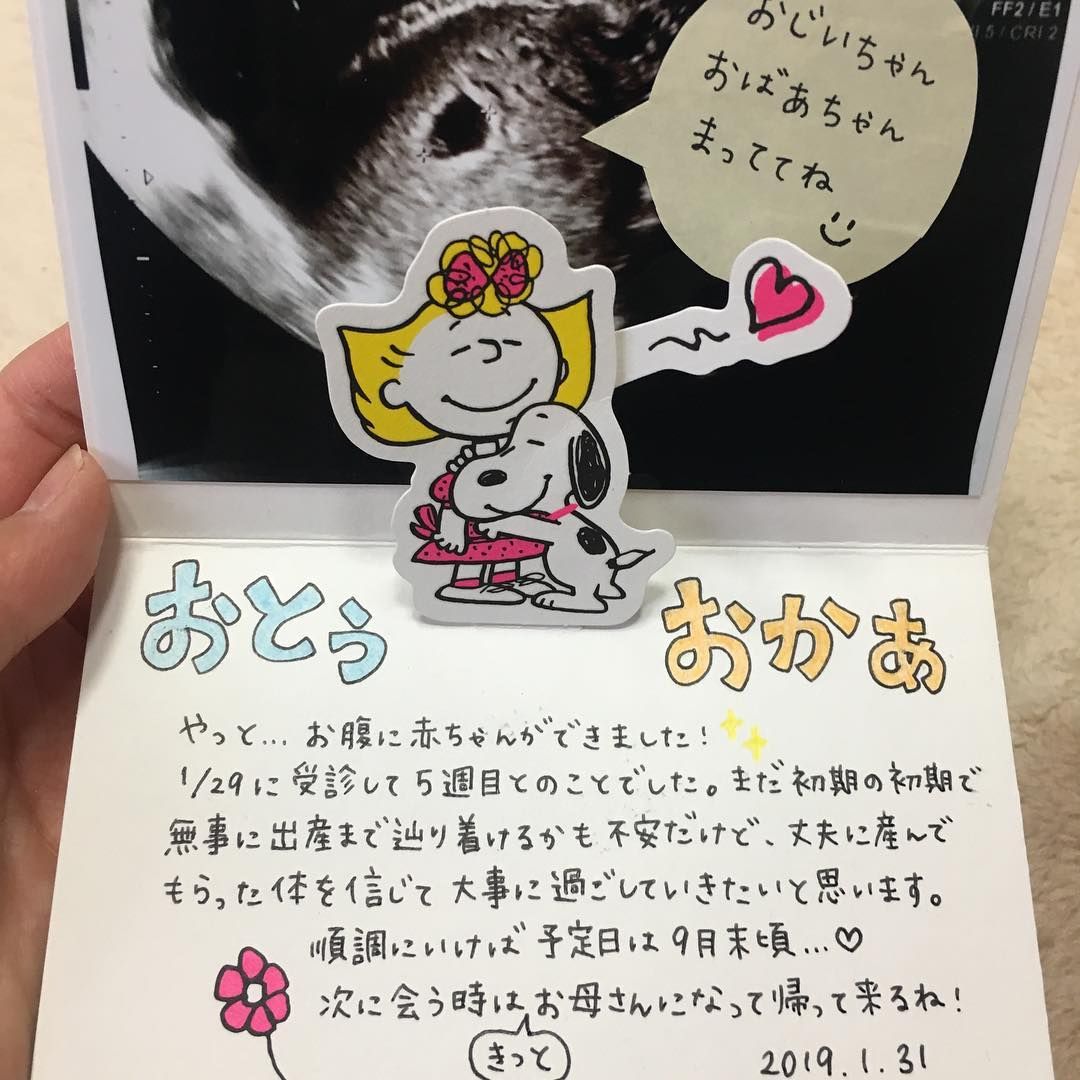 FF2/E1
1.5/CRI 2
おじいちゃん
おばあちゃん
まっててね
おとぅ
おかぁ
やっと… お腹に赤ちゃんができました!
1/29に受診して5週目とのことでした。まだ初期の初期で
無事に出産まで辿り着けるかも不安だけど、丈夫に産んで
もらった体を信じて大事に過ごしていきたいと思います。
順調にいけば予定日は9月末頃…♡
次に会う時はお母さんになって帰って来るね!
きっと
2019.1.31